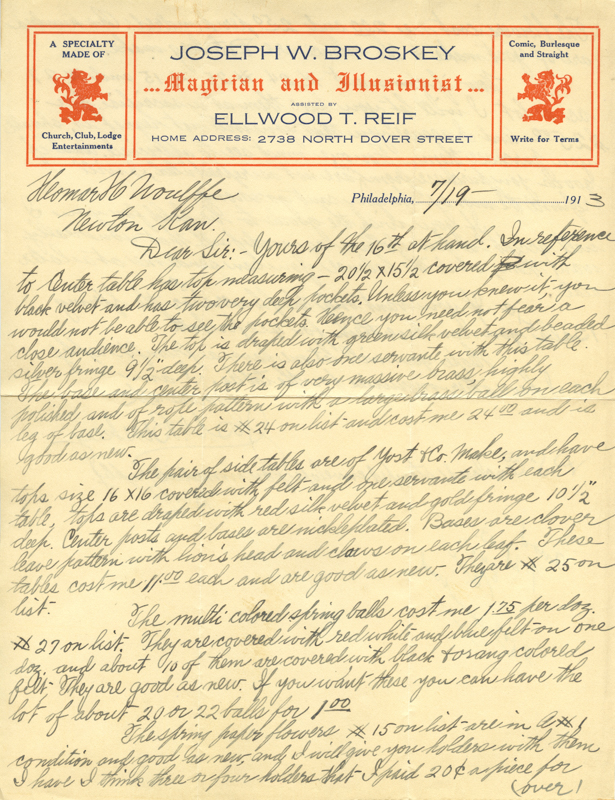 A SPECIALTY
MADE OF
Church, Club, Lodge
Entertainments
JOSEPH W. BROSKEY
...Magician and Illusionist...
ASSISTED BY
ELLWOOD T. REIF
HOME ADDRESS: 2738 NORTH DOVER STREET
Comic, Burlesque
and Straight
Write for Terms
Homar H Woulffe
Philadelphia, 7/19- 1913
Newton Kan.
Dear Sir:- Yours of the 16th at hand. In reference
to Center table has top measuring - 20 1/2 X 15 1/2 covered with
black velvet and has two very deep pockets. Unless you knew it, you
would not be able to see the pockets. Hence you need not fear, a
close audience. The top is draped with green silk velvet and beaded
silver fringe 9 1/2" deep. There is also one servante with this table.
The base and center post is of very massive brass, highly
polished and of rope pattern with a large brass ball on each
leg of base. This table is # 24 on list and cost me 24.00 and is
good as new.
The pair of side tables are of Yost & Co. Make, and have
tops size 16 X 16 covered with felt and one servante with each
table, tops are draped with red silk velvet and gold fringe 10 1/2"
deep. Center posts and bases are nickleplated. Bases are clover
leave pattern with lion's head and claws on each leaf. These
tables cost me 11.00 each and are good as new. They are # 25 on
list.
The multi colored spring balls cost me 1.75 per doz.
# 27 on list. They are covered with red white and blue felt on one
doz. and about 10 of them are covered with black & orang colored
felt. They are good as new. If you want these you can have the
lot of about 20 or 22 balls for 1.00
The spring paper flowers # 15 on list are in A #1
condition and good as new, and I will give you holders with them
I have I think three or four holders that I paid 20¢ a piece for
(over)